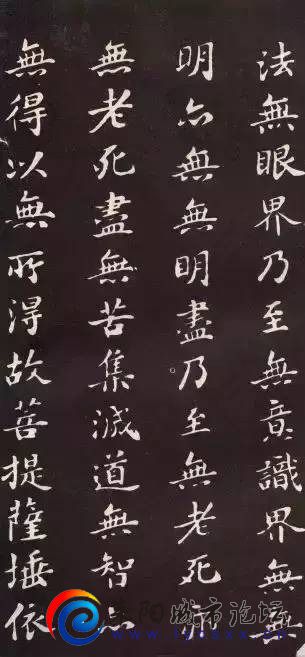 法無眼界乃至無意識界無無
明亦無無明盡乃至無老死亦
無老死盡無苦集滅道無智亦
無得以無所得故菩提薩埵依
阳城市论坛